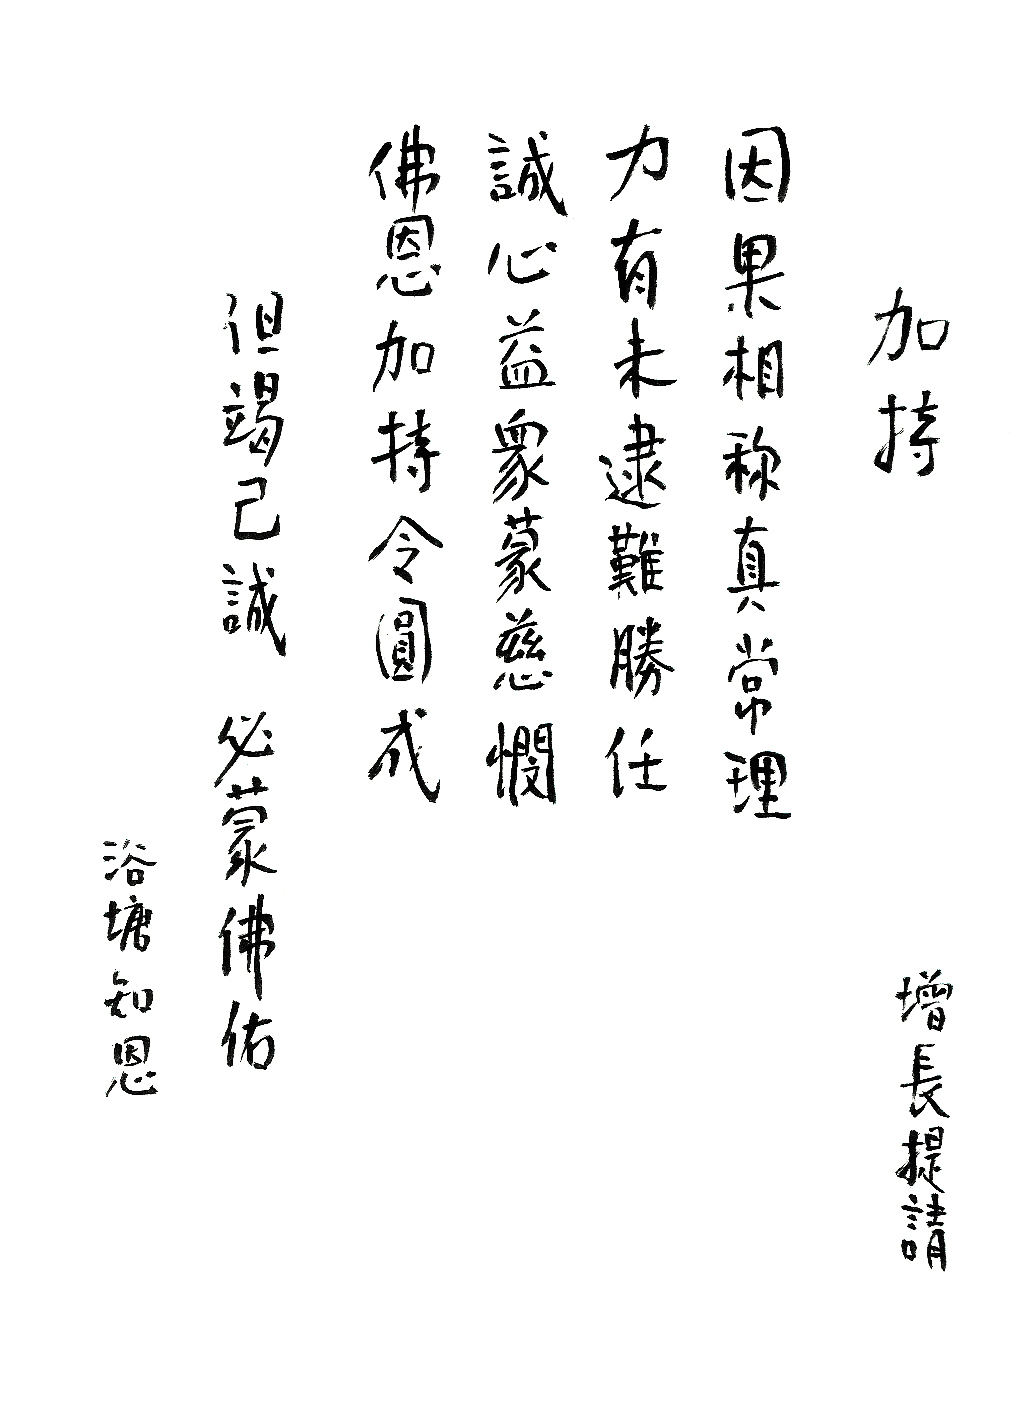 加持
增長提請
因果相称真常理
力有未逮難勝任
誠心益衆蒙慈憫
佛恩加持令圓成
但竭己誠 必蒙佛佑
浴塘知恩